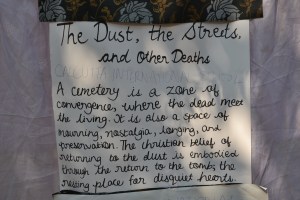 The Dust, the Streets,
and Other Deaths
A cemetery is a zone of
convergence, where the dead meet
the living. It is also a space of
mourning, nostalgia, longing, and
preservation. The christian belief of
returning to the dust is embodied
through the return to the tomb; the
resting place for disquiet hearts.